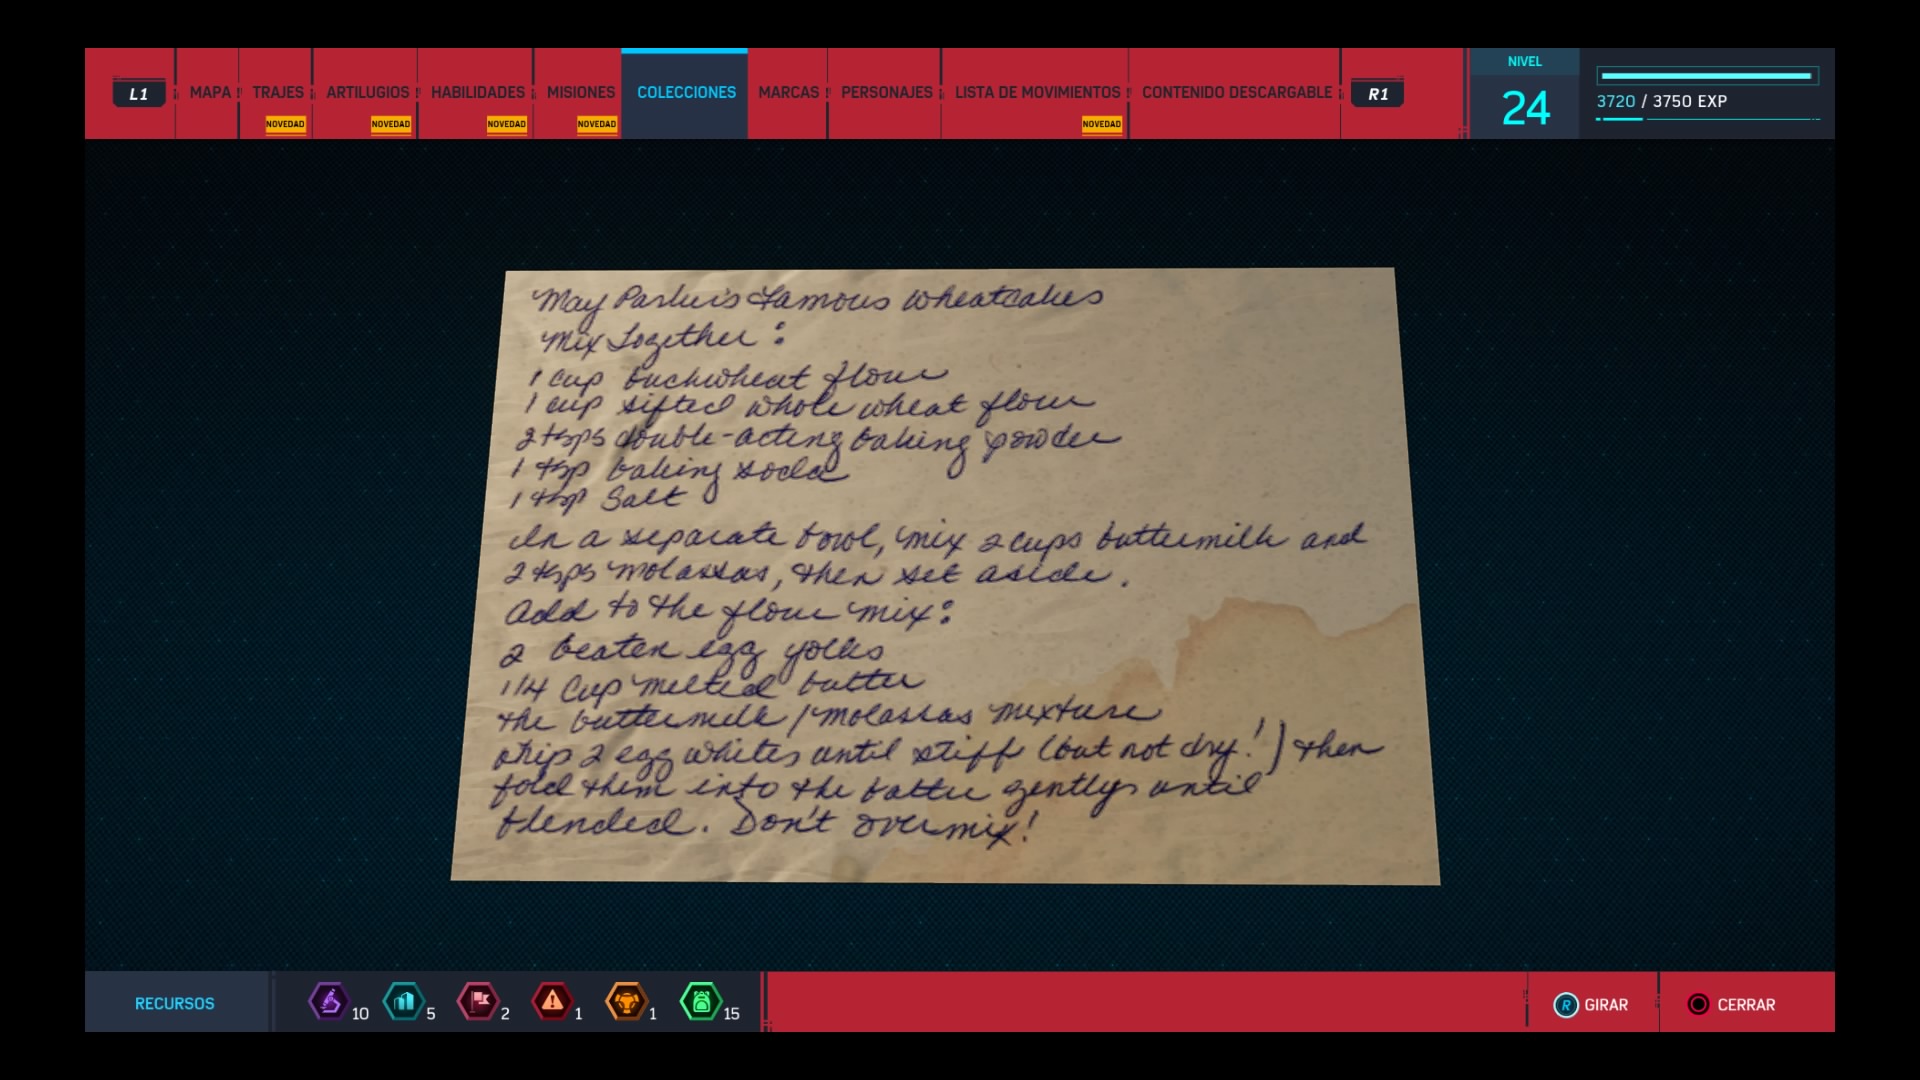 L1 MAPA TRAJES ARTILUGIOS HABILIDADES MISIONES COLECCIONES MARCAS PERSONAJES LISTA DE MOVIMIENTOS CONTENIDO DESCARGABLE R1
NOVEDAD NOVEDAD NOVEDAD NOVEDAD NOVEDAD
NIVEL
24
3720 / 3750 EXP
May Parker's Famous Wheatcakes
Mix Together:
1 cup buckwheat flour
1 cup sifted whole wheat flour
2 tsps double-acting baking powder
1 tsp baking soda
1 tsp Salt
In a separate bowl, mix 2 cups buttermilk and
2 tsps molassas, then set aside.
Add to the flour mix:
2 beaten egg yolks
1/4 Cup melted butter
the buttermilk/molassas mixture
whip 2 egg whites until stiff (but not dry!) then
fold them into the batter gently until
blended. Don't overmix!
RECURSOS
10 5 2 1 1 15
R GIRAR
CERRAR